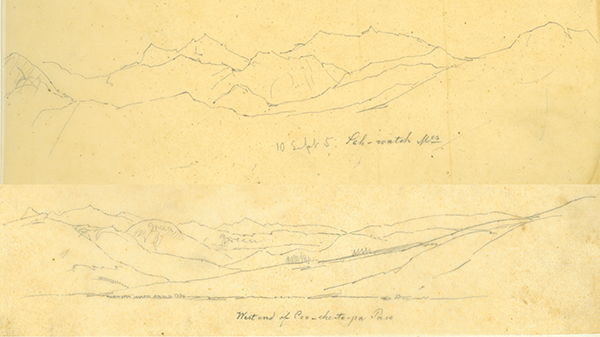 10 Sept 5. Sah-watch Mts
Green
West end of Coo-che-to-pa Pass